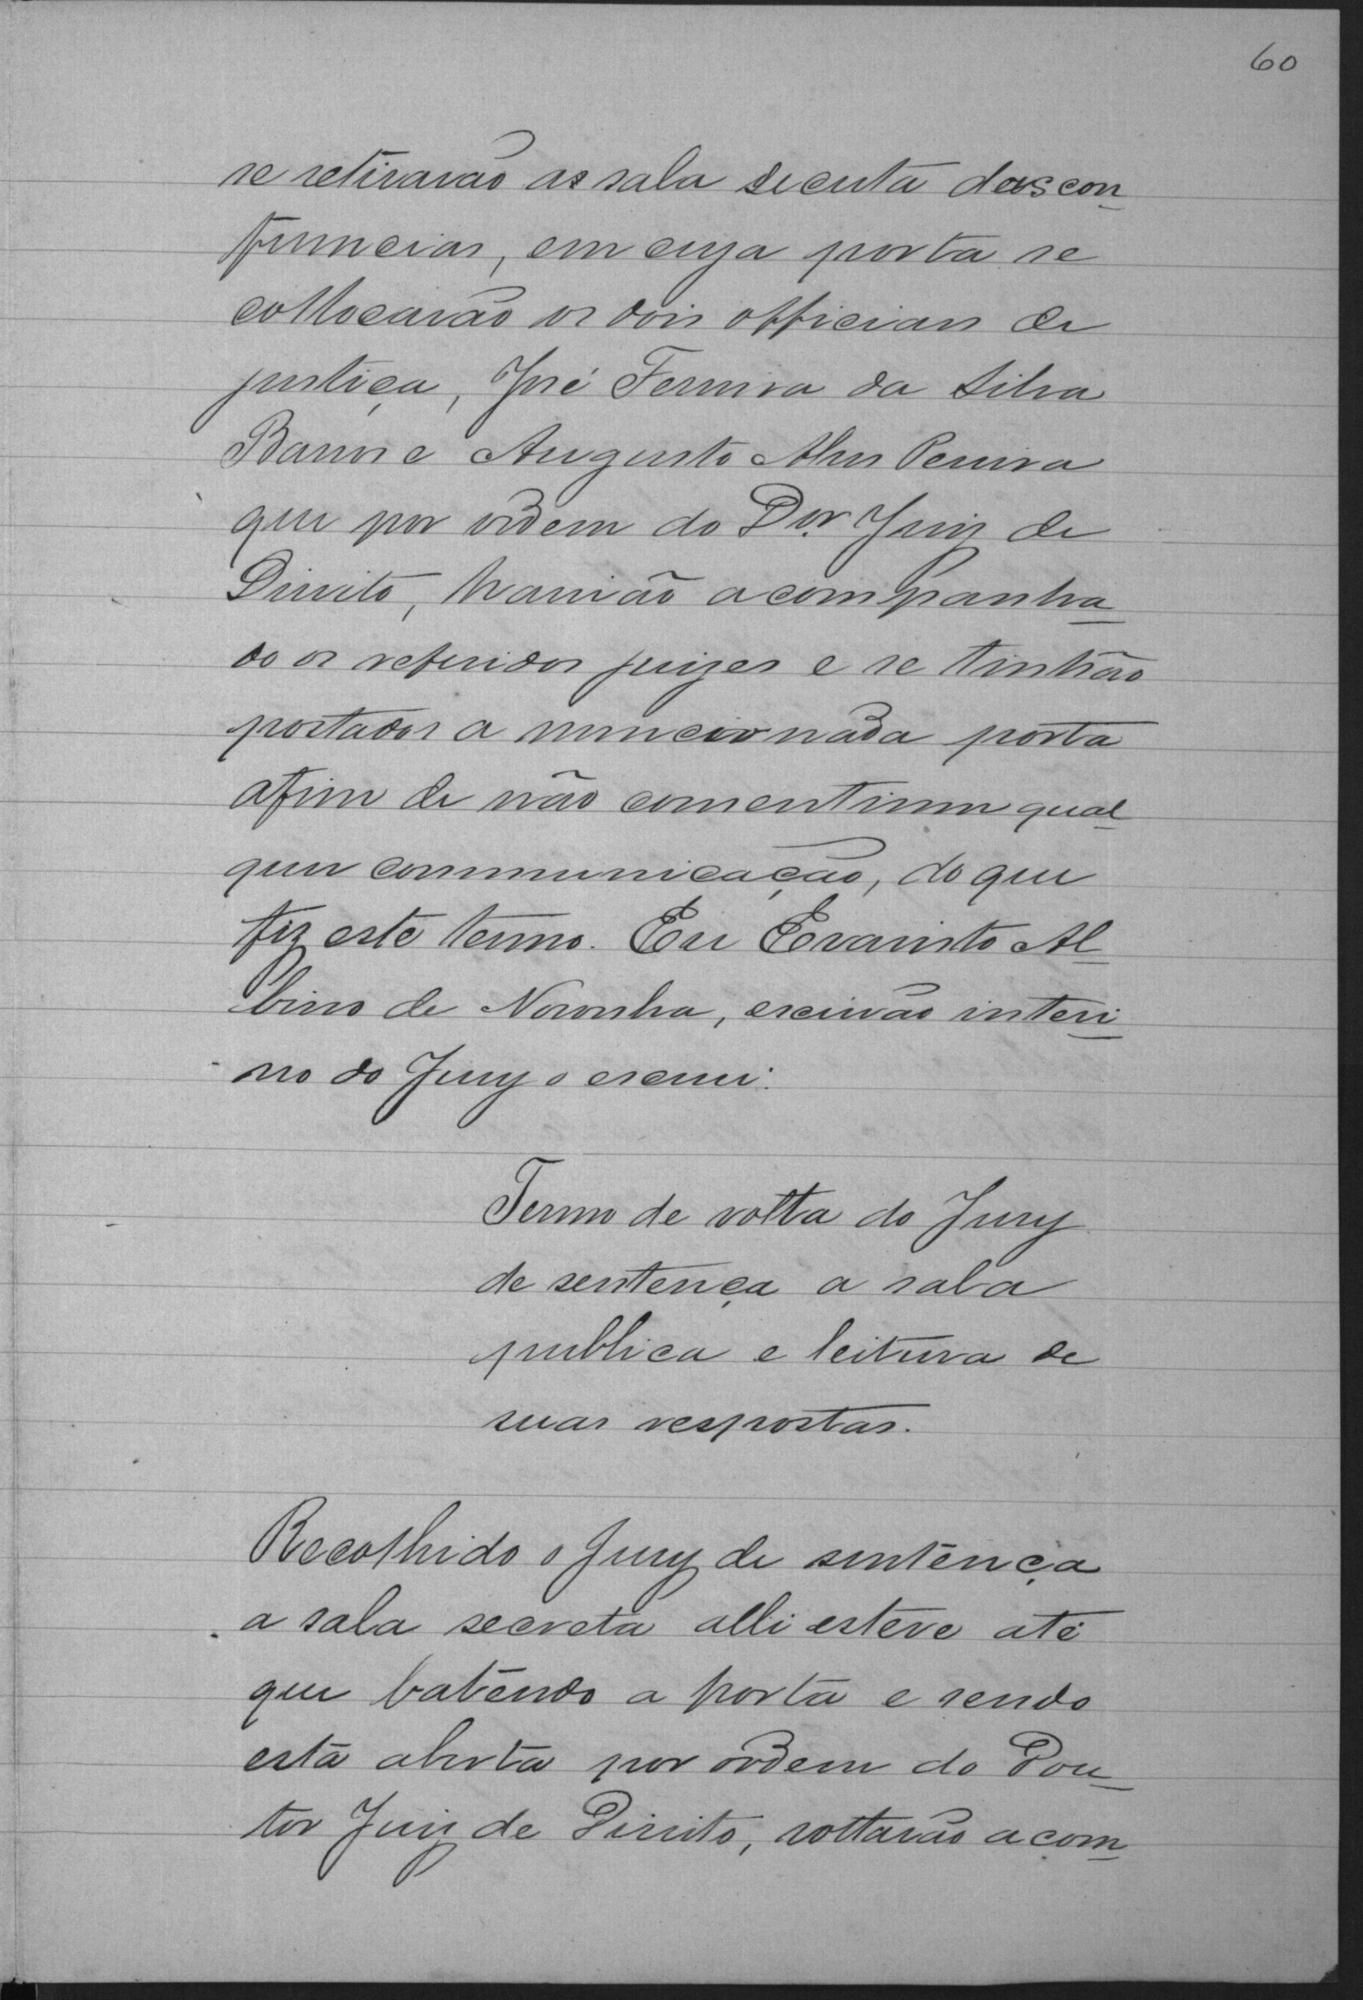 60
se retirarão as sala secreta das con-
ferencias, em cuja porta se
collocarão os dois officiaes de
justiça, José Ferreira da Silva
Barros e Augusto Alves Pereira
que por ordem do Dor. Juiz de
Direito, havião acompanha-
do os referidos juizes e se tinhão
portados a mencionada porta
afim de não consentirem qual-
quer communicação, do que
fiz este termo. Eu Evaristo Al-
bino de Noronha, escrivão interi-
no do Jury o escrevi.
Termo de volta do Jury
de sentença a sala
publica e leitura de
suas respostas.
Recolhido o Jury de sentença
a sala secreta alli esteve até
que batendo a porta e sendo
esta aberta por ordem do Dou-
tor Juiz de Direito, voltarão acom-